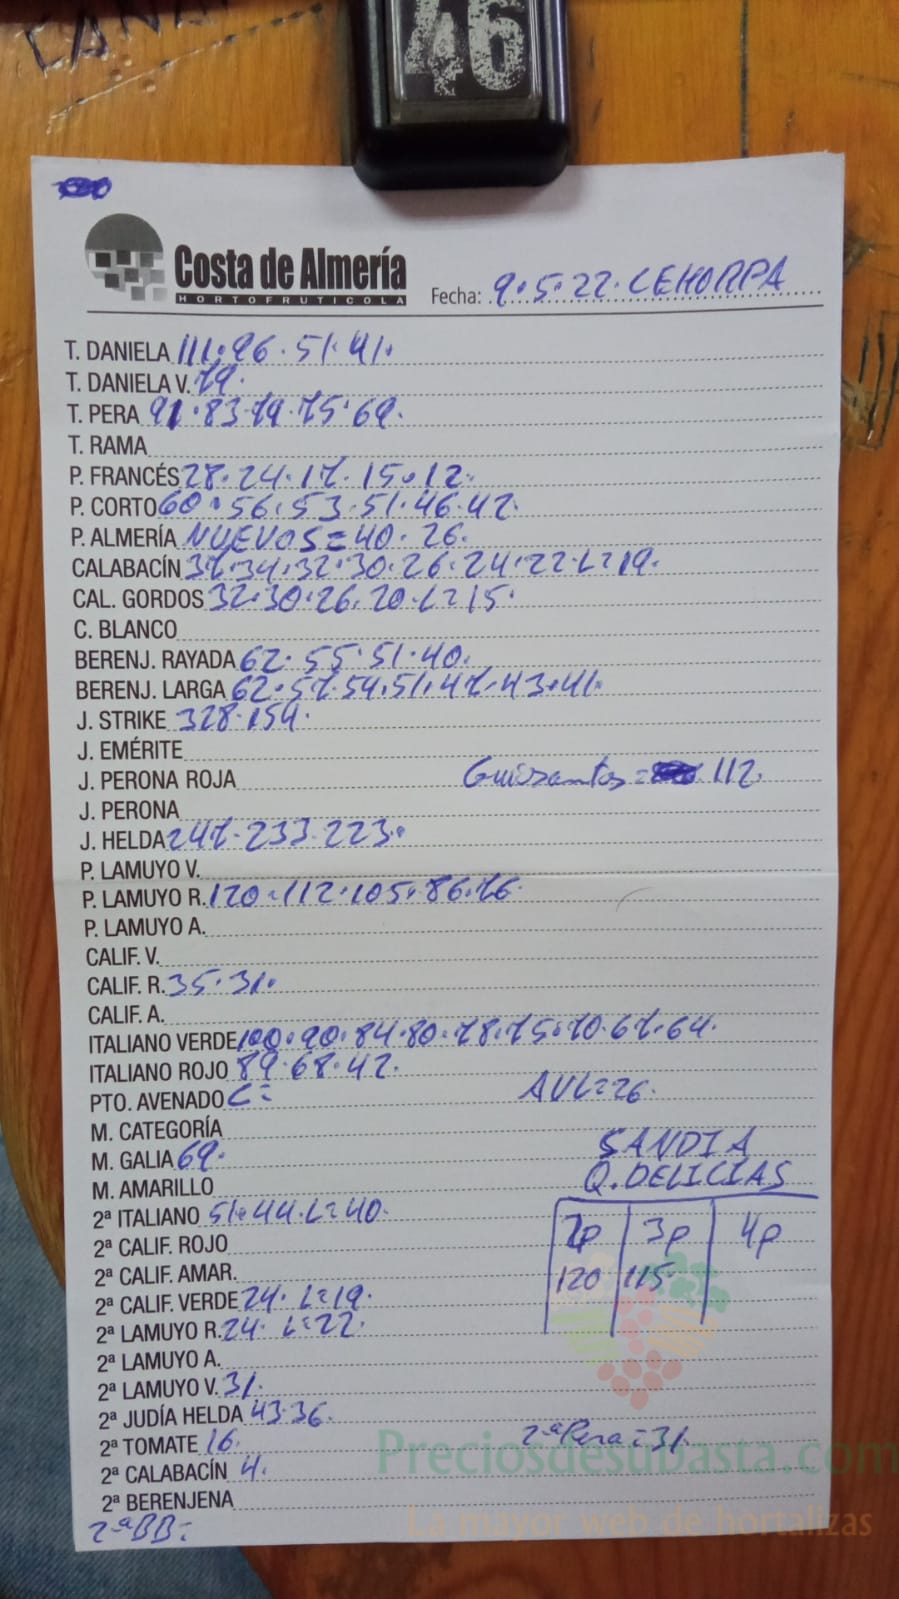 46
Costa de Almería
HORTOFRUTICOLA
Fecha: 9.5.22. CEHORPA
T. DANIELA 111.96.51.41.
T. DANIELA V. 79.
T. PERA 91.83.79.75.69.
T. RAMA
P. FRANCÉS 28.24.17.15.12.
P. CORTO 60.56.53.51.46.42.
P. ALMERÍA NUEVOS=40.26.
CALABACÍN 37.34.32.30.26.24.22.L=19.
CAL. GORDOS 32.30.26.20.L=15.
C. BLANCO
BERENJ. RAYADA 62.55.51.40.
BERENJ. LARGA 62.57.54.51.47.43.41.
J. STRIKE 328.154.
J. EMÉRITE
J. PERONA ROJA Guisantes= 112.
J. PERONA
J. HELDA 247.233.223.
P. LAMUYO V.
P. LAMUYO R. 120.112.105.86.76.
P. LAMUYO A.
CALIF. V.
CALIF. R. 35.31.
CALIF. A.
ITALIANO VERDE 100.90.84.80.78.75.70.67.64.
ITALIANO ROJO 89.68.42.
PTO. AVENADO C= AVL=26.
M. CATEGORÍA
M. GALIA 69.
M. AMARILLO
SANDIA
Q. DELICIAS
2p 3p 4p
120 115
2ª ITALIANO 51.44.L=40.
2ª CALIF. ROJO
2ª CALIF. AMAR.
2ª CALIF. VERDE 24. L=19.
2ª LAMUYO R. 24. L=22.
2ª LAMUYO A.
2ª LAMUYO V. 31.
2ª JUDÍA HELDA 43.36.
2ª TOMATE 16. 2ª Pera=31.
2ª CALABACÍN 4.
2ª BERENJENA
2ª BB=
Preciosdesubasta.com
La mayor web de hortalizas